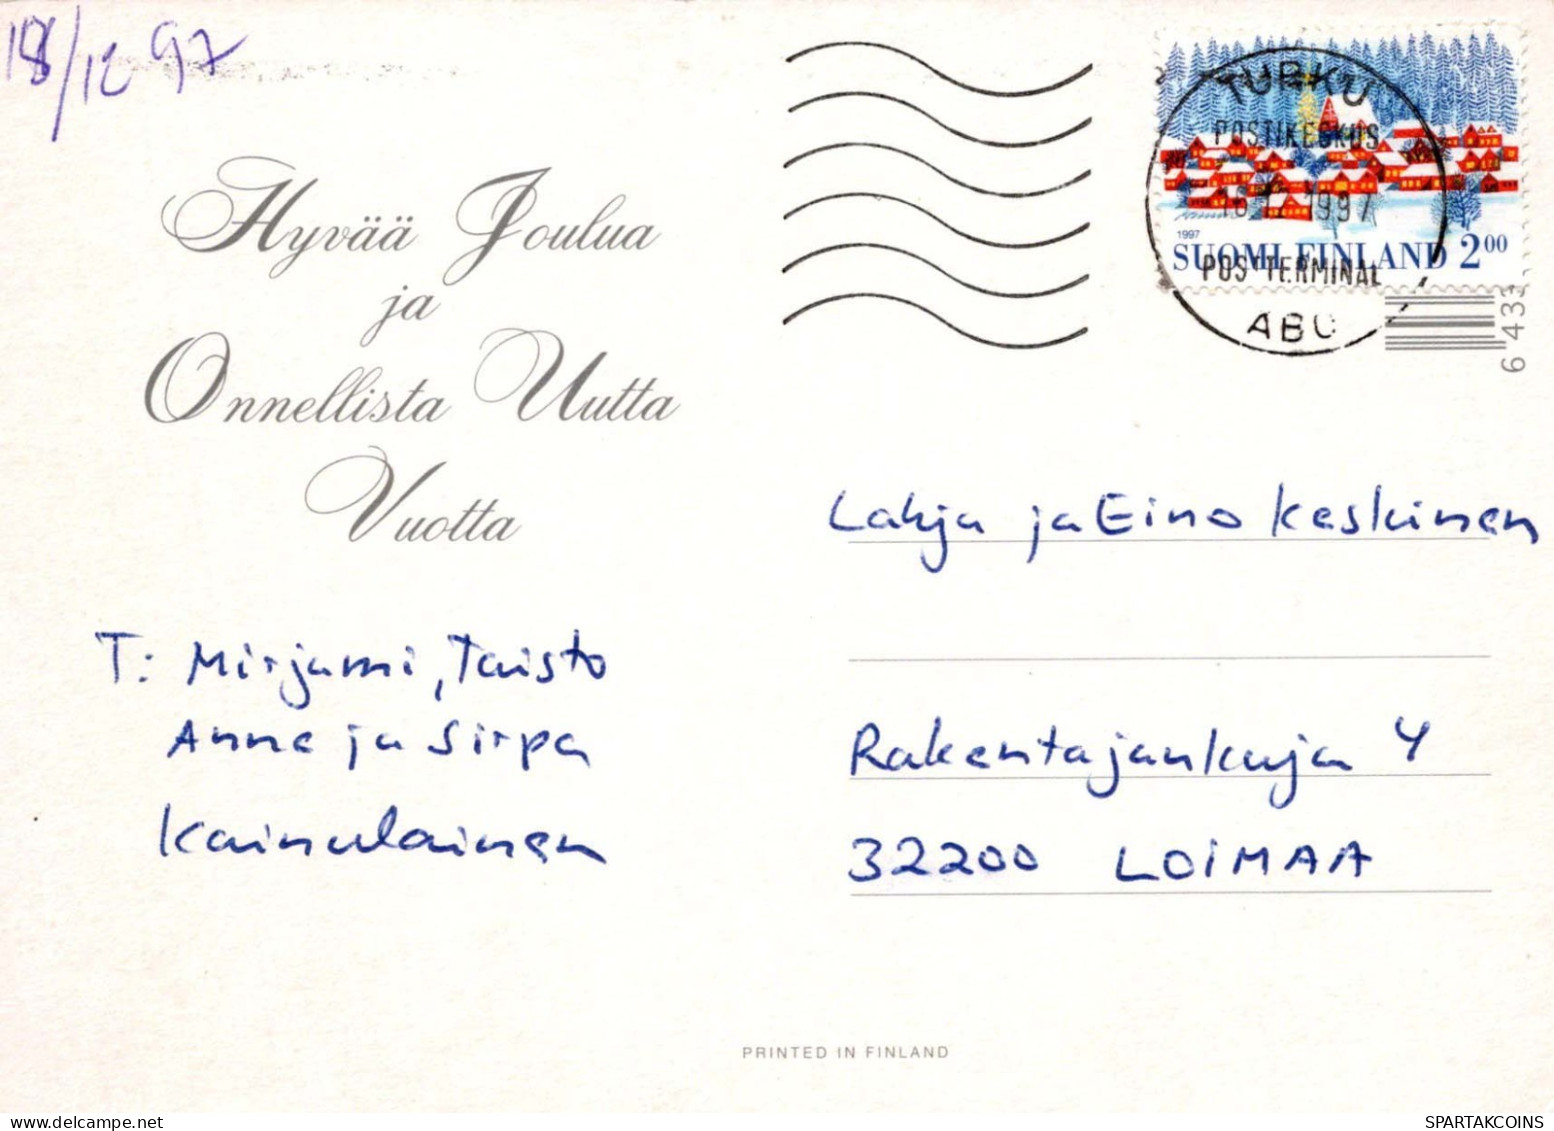 18/12 97
Hyvää Joulua
ja
Onnellista Uutta
Vuotta
T: Mirjami, Taisto
Anne ja Sirpa
Kainulainen
TURKU
POSTIKESKUS
1997
POSTTERMINAL
ABO
1997
SUOMI FINLAND 2 00
6 433
Lahja ja Eino Keskinen
Rakentajankuja 4
32200 LOIMAA
PRINTED IN FINLAND
delcampe.net
SPARTAKCOINS